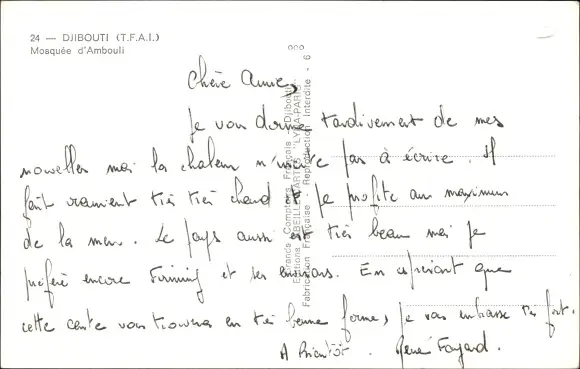 24 — DJIBOUTI (T.F.A.I.)
Mosquée d'Ambouli
Chère Annie,
Je vous donne tardivement de mes
nouvelles mais la chaleur n'incite pas à écrire. Il
fait vraiment très très chaud et je profite au maximum
de la mer. Le pays aussi est très beau mais je
préfère encore Firminy et ses environs. En espérant que
cette carte vous trouvera en très bonne forme, je vous embrasse très fort.
A Bientôt. René Fayard.
Grands Comptoirs Français - Djibouti
Editions ABEILLE-CARTES "LYNA-PARIS"
Fabrication Française - Reproduction interdite - 6